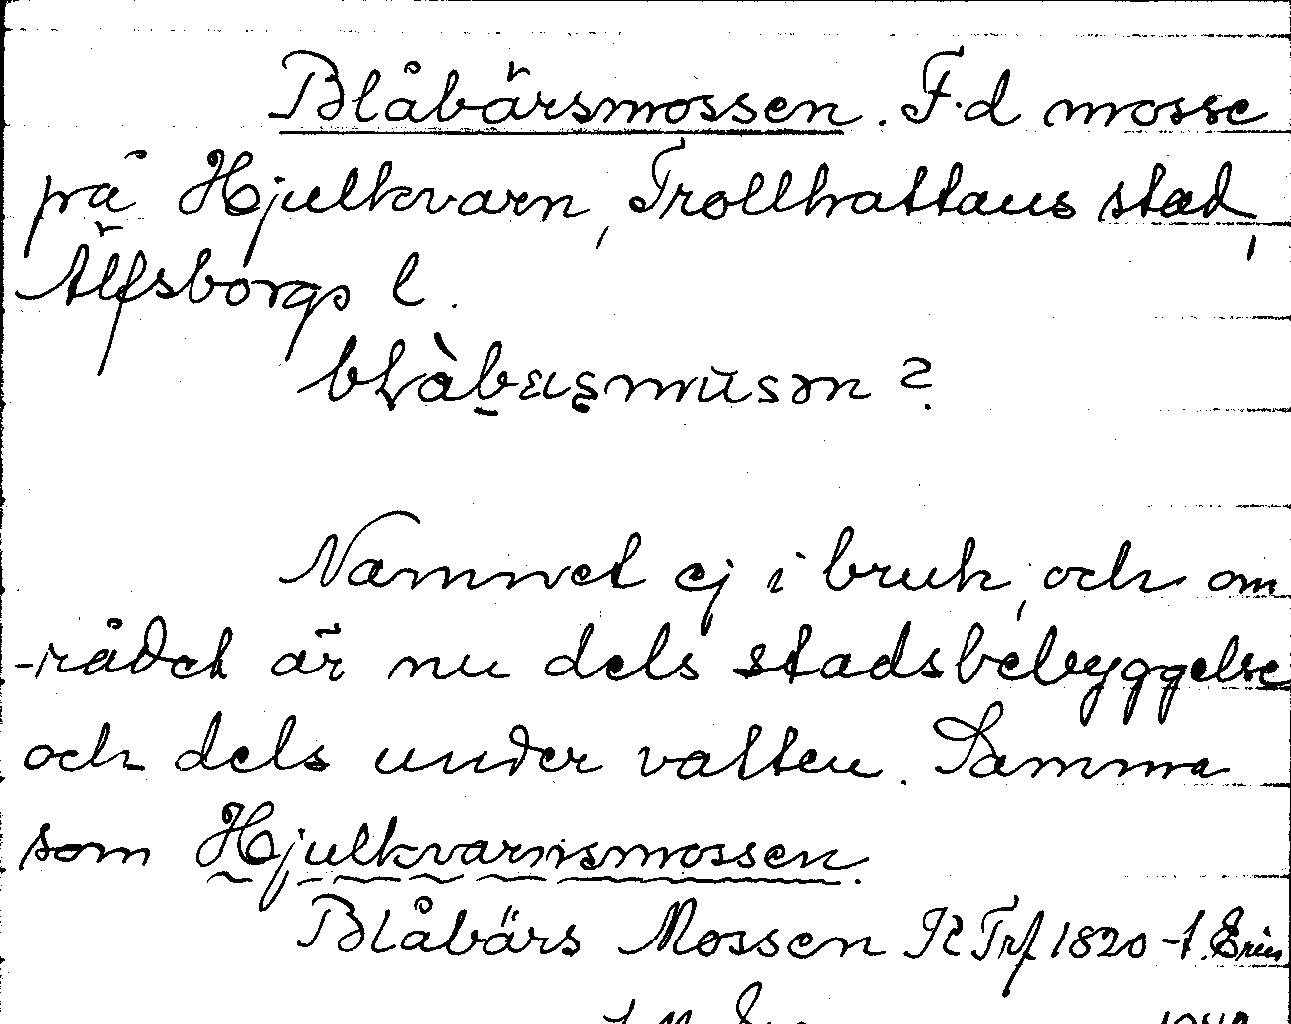 Blåbärsmossen. F.d mosse
på Hjulkvarn, Trollhättans stad,
Älfsborgs l.
Namnet ej i bruk, och om
-rådet är nu dels stadsbebyggelse
och dels under vatten. Samma
som Hjulkvarnsmossen.
Blåbärs Mossen R Trf 1820